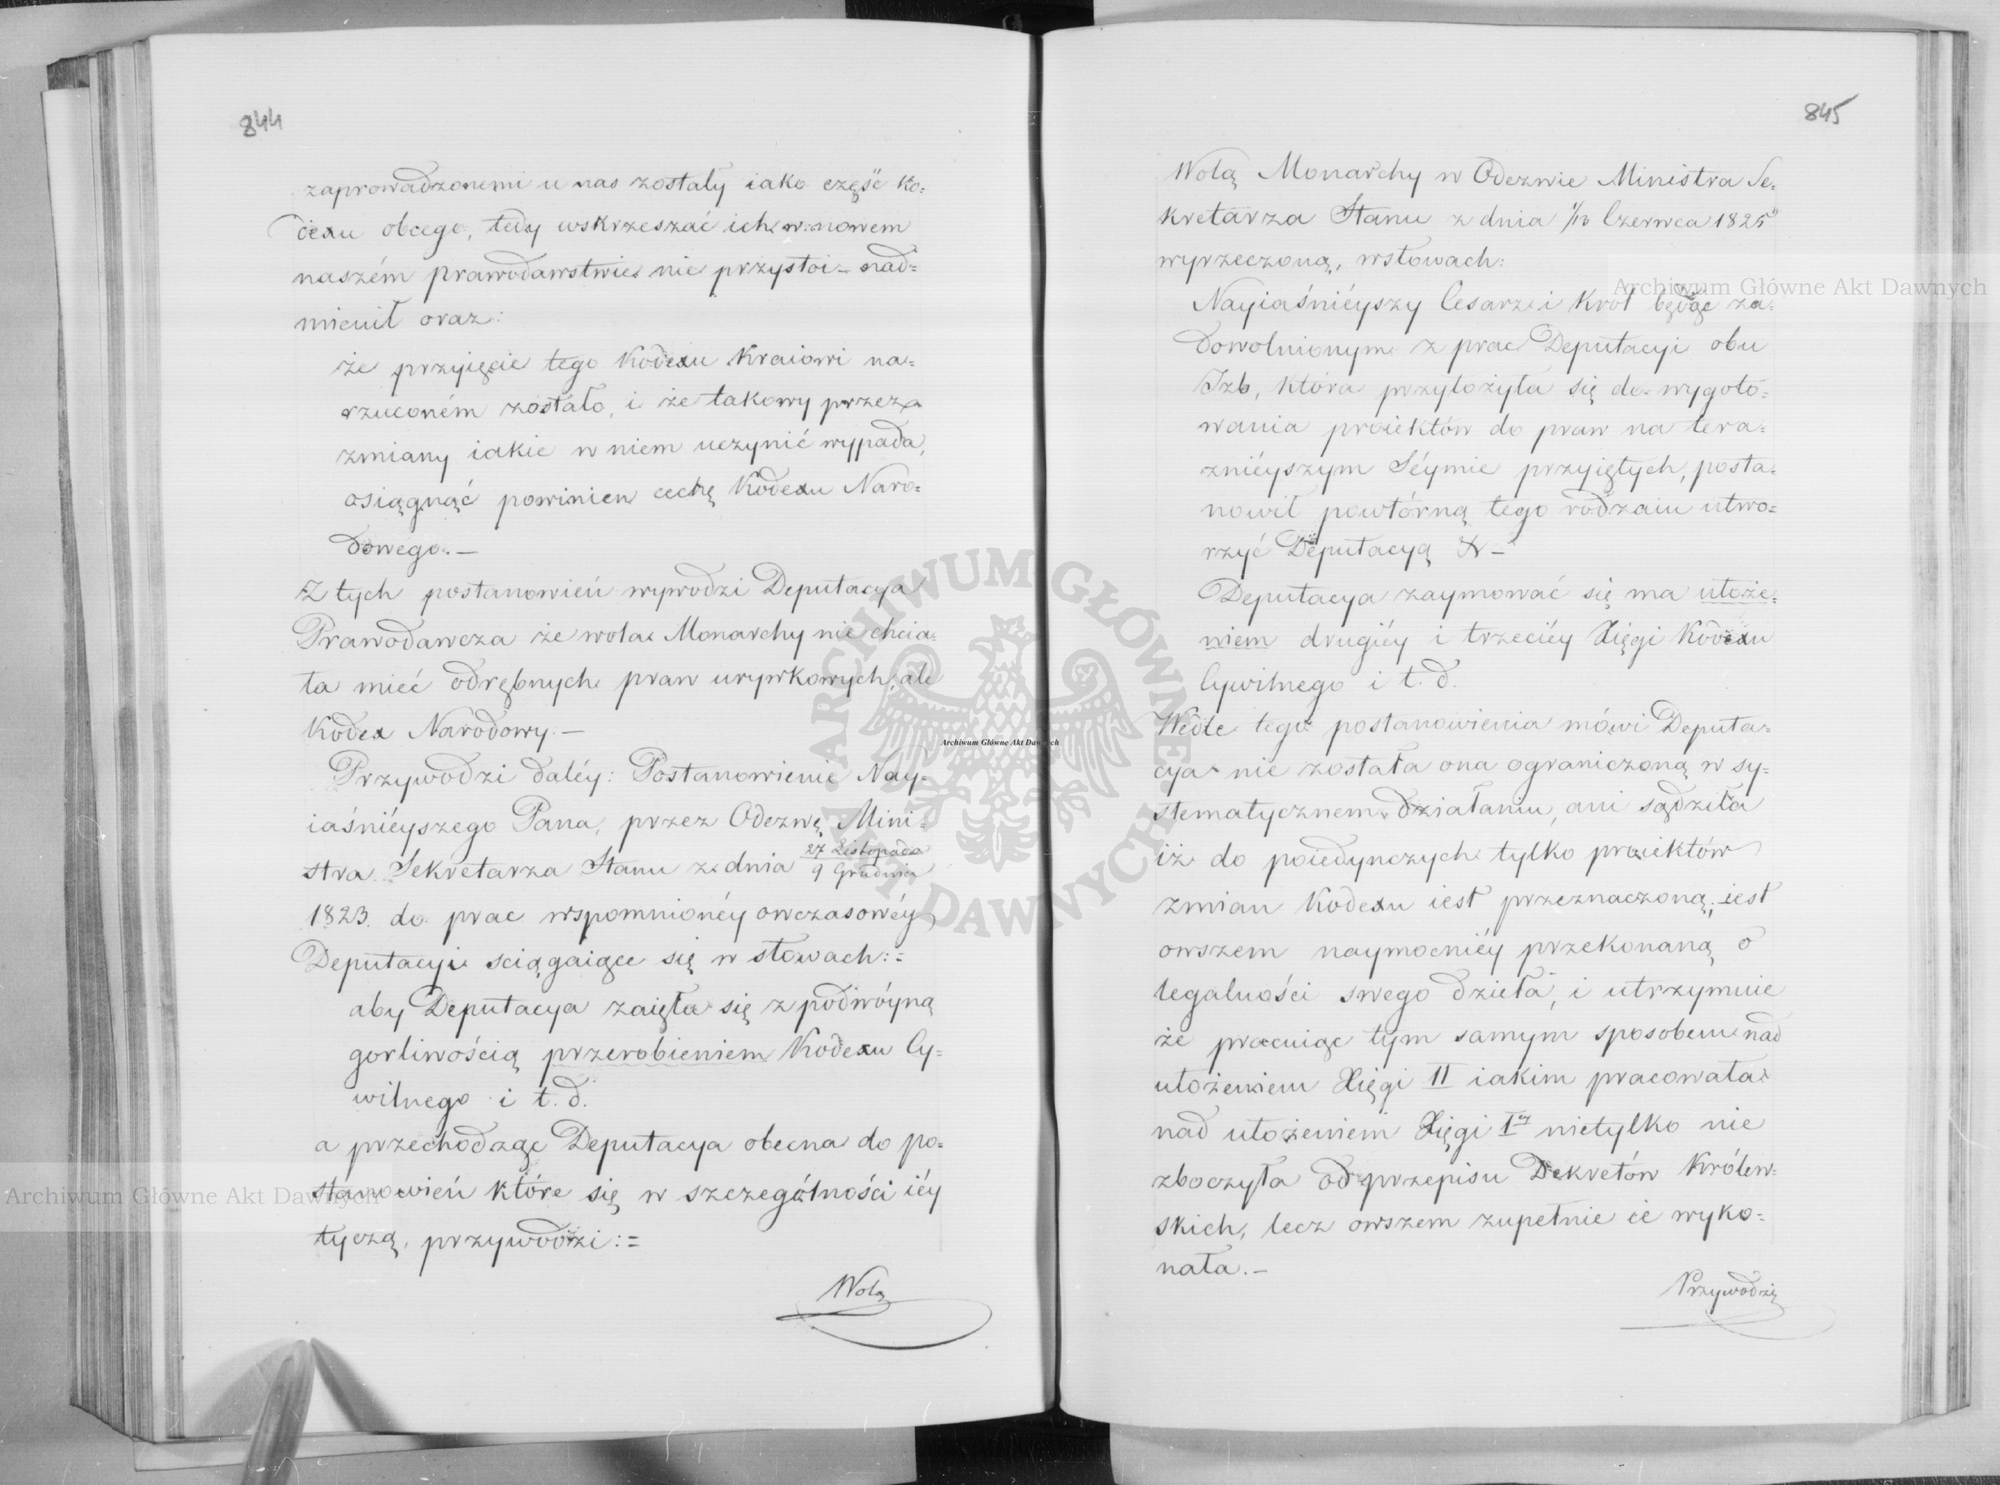 844
zaprowadzonemi u nas zostały iako część Ko-
dexu obcego, tedy wskrzeszać ich w nowem
naszém prawodawstwie nie przystoi – nad-
mienił oraz:
że przyięcie tego Kodexu Kraiowi na-
rzuconém zostało, i że takowy przez
zmiany iakie w niem uczynić wypada,
osiągnąć powinien cechę Kodexu Naro-
dowego. –
Z tych postanowień wywodzi Deputacya
Prawodawcza że wola Monarchy nie chcia-
ła mieć odrębnych praw urywkowych, ale
Kodex Narodowy. –
Przywodzi daléy: Postanowienie Nay-
iaśniéyszego Pana, przez Odezwę Mini-
stra Sekretarza Stanu z dnia 27 Listopada / 9 Grudnia
1823. do prac wspomnionéy owczasowéy
Deputacyi sciągaiące się w słowach:=
aby Deputacya zaięła się z podwóyną
gorliwością przerobieniem Kodexu Cy-
wilnego i t. d.
a przechodząc Deputacya obecna do po-
stanowień które się w szczególności iéy
tyczą, przywodzi:=
Wolą
845
Wolą Monarchy w Odezwie Ministra Se-
kretarza Stanu z dnia 1/13 Czerwca 1825
wyrzeczoną, w słowach:
Nayiaśniéyszy Cesarz i Król będąc za-
dowolnionym z prac Deputacyi obu
Izb, która przyłożyła się do wygoto-
wania proiektów do praw na tera-
źniéyszym Séymie przyiętych, posta-
nowił powtórną tego rodzaiu utwo-
rzyć Deputacyą &c –
Deputacya zaymować się ma ułoże-
niem drugiéy i trzeciéy Xięgi Kodexu
Cywilnego i t. d.
Wedle tego postanowienia mówi Deputa-
cya nie została ona ograniczoną w sy-
stematycznem działaniu, ani sądziła
iż do poiedynczych tylko proiektów
zmian Kodexu iest przeznaczoną; iest
owszem naymocniéy przekonaną o
legalności swego dzieła, i utrzymuie
że pracuiąc tym samym sposobem nad
ułożeniem Xięgi II iakim pracowała
nad ułożeniem Xięgi Iéy nietylko nie
zboczyła od przepisu Dekretów Królew-
skich, lecz owszem zupełnie ie wyko-
nała. –
Przywodzi
Archiwum Główne Akt Dawnych
Archiwum Główne Akt Dawnych
Archiwum Główne Akt Dawnych
ARCHIWUM GŁÓWNE AKT DAWNYCH